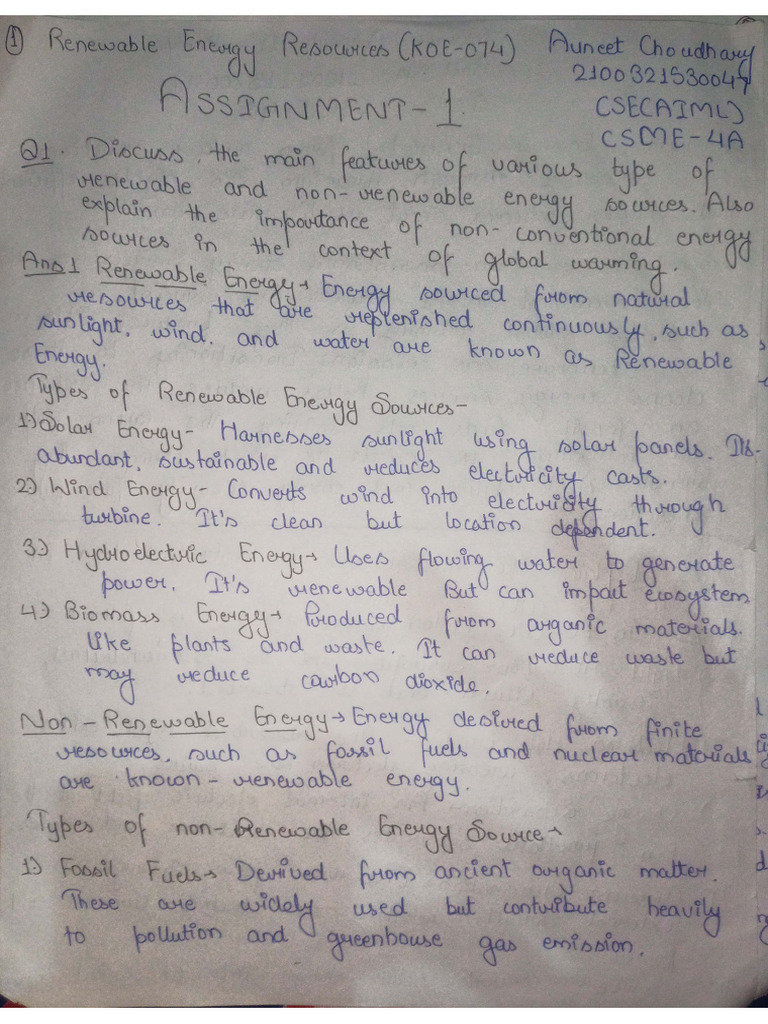 ① Renewable Energy Resources (KOE-074) Auneet Choudhary
2100321530047
ASSIGNMENT-1 CSE(AIML)
CSME-4A
Q1. Discuss the main features of various type of
renewable and non-renewable energy sources. Also
explain the importance of non-conventional energy
sources in the context of global warming.
Ans1 Renewable Energy→ Energy sourced from natural
resources that are replenished continuously, such as
sunlight, wind, and water are known as Renewable
Energy.
Types of Renewable Energy Sources-
1) Solar Energy- Harnesses sunlight using solar panels. Its
abundant, sustainable and reduces electricity casts.
2) Wind Energy- Converts wind into electricity through
turbine. It's clean but location dependent.
3) Hydroelectric Energy→ Uses flowing water to generate
power. It's renewable But can impact ecosystem
4) Biomass Energy→ Produced from organic materials.
like plants and waste. It can reduce waste but
may reduce carbon dioxide.
Non-Renewable Energy→ Energy desired from finite
resources, such as fossil fuels and nuclear materials
are known-renewable energy.
Types of non-Renewable Energy Source→
1) Fossil Fuels→ Derived from ancient organic matter.
These are widely used but contribute heavily
to pollution and greenhouse gas emission.